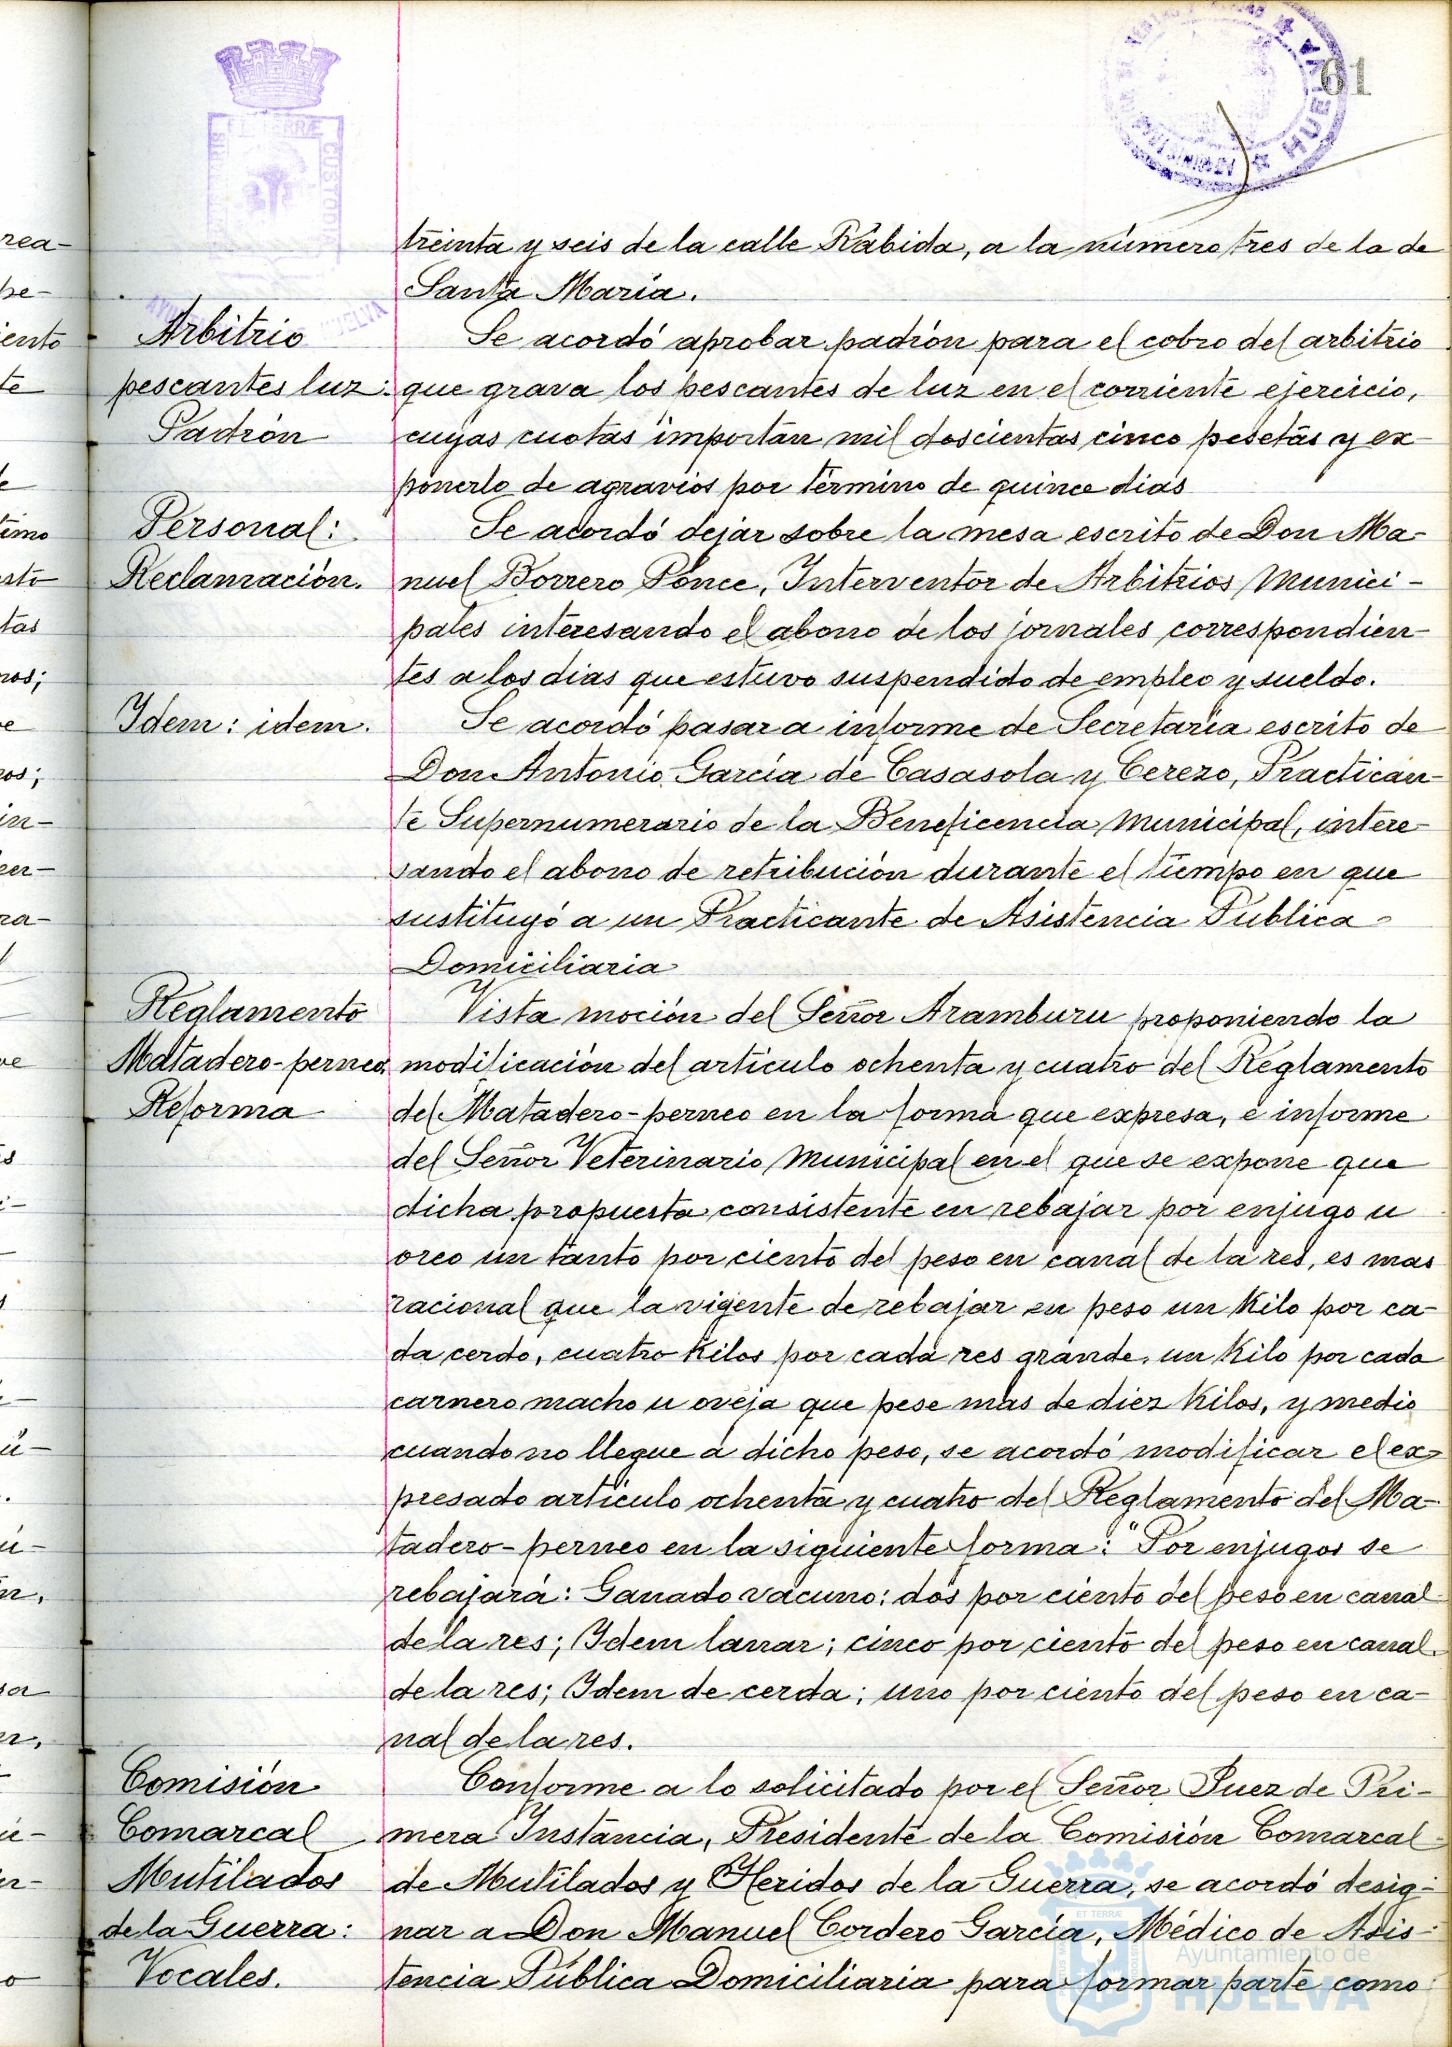 61
HUELVA
ET TERRÆ
CUSTODIA
treinta y seis de la calle Rábida, a la número tres de la de
Santa María.
Arbitrio
pescantes luz:
Padrón
Se acordó aprobar padrón para el cobro del arbitrio
que grava los pescantes de luz en el corriente ejercicio,
cuyas cuotas importan mil doscientas cinco pesetas y ex-
ponerlo de agravios por término de quince dias
Personal:
Reclamación.
Se acordó dejar sobre la mesa escrito de Don Ma-
nuel Borrero Ponce, Interventor de Arbitrios Munici-
pales interesando el abono de los jornales correspondien-
tes a los dias que estuvo suspendido de empleo y sueldo.
Idem: idem.
Se acordó pasar a informe de Secretaría escrito de
Don Antonio García de Casasola y Cerezo, Practican-
te Supernumerario de la Beneficencia Municipal, intere-
sando el abono de retribución durante el tiempo en que
sustituyó a un Practicante de Asistencia Pública
Domiciliaria
Reglamento
Matadero-perneo
Reforma
Vista moción del Señor Aramburu proponiendo la
modificación del artículo ochenta y cuatro del Reglamento
del Matadero-perneo en la forma que expresa, e informe
del Señor Veterinario Municipal en el que se expone que
dicha propuesta consistente en rebajar por enjugo u
oreo un tanto por ciento del peso en canal de la res, es mas
racional que la vigente de rebajar en peso un Kilo por ca-
da cerdo, cuatro Kilos por cada res grande, un Kilo por cada
carnero macho u oveja que pese mas de diez Kilos, y medio
cuando no llegue a dicho peso, se acordó modificar el ex-
presado artículo ochenta y cuatro del Reglamento del Ma-
tadero-perneo en la siguiente forma: "Por enjugos se
rebajará: Ganado vacuno: dos por ciento del peso en canal
de la res; Idem lanar; cinco por ciento del peso en canal
de la res; Idem de cerda; uno por ciento del peso en ca-
nal de la res.
Comisión
Comarcal
Mutilados
de la Guerra:
Vocales.
Conforme a lo solicitado por el Señor Juez de Pri-
mera Instancia, Presidente de la Comisión Comarcal
de Mutilados y Heridos de la Guerra, se acordó desig-
nar a Don Manuel Cordero García, Médico de Asis-
tencia Pública Domiciliaria para formar parte como
Ayuntamiento de
HUELVA